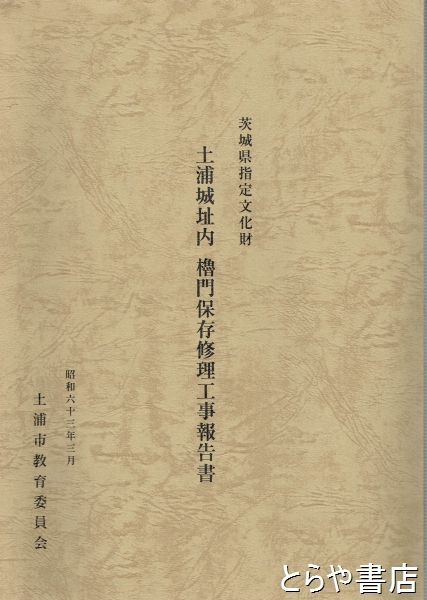 茨城県指定文化財
土浦城址内 櫓門保存修理工事報告書
昭和六十三年三月
土浦市教育委員会
とらや書店